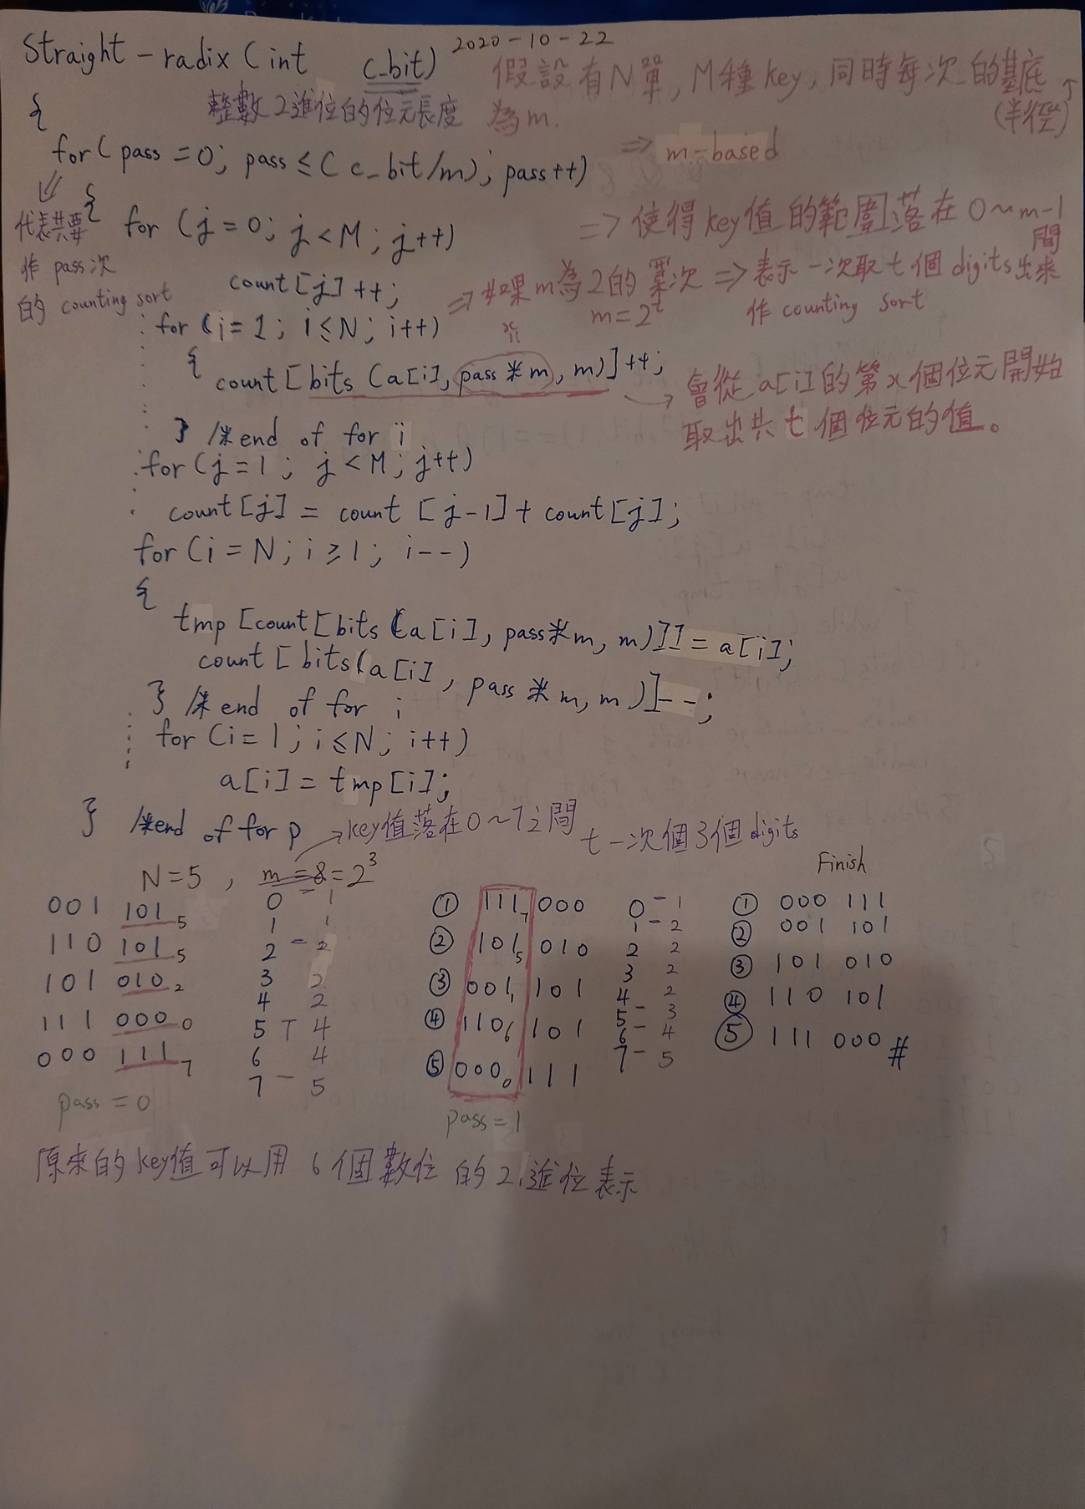 Straight-radix (int c_bit) 2020-10-22
整數2進位的位元長度
假設有N單, M種key, 同時每次的基底
為m.
(半徑)
{
for (pass = 0; pass ≤ (c_bit/m); pass++)
⇒ m-based
代表共要
作 pass次
的 counting sort
{
for (j=0; j<M; j++)
⇒ 使得key值的範圍落在0~m-1
間
count[j]++;
⇒ 如果m為2的冪次 ⇒ 表示一次取t個digits出來
m=2^t
作 counting sort
for (i=1; i≤N; i++)
{
count[bits(a[i], pass*m, m)]++;
會從a[i]的第x個位元開始
取出共t個位元的值。
} /*end of for i
for (j=1; j<M; j++)
count[j] = count [j-1] + count[j];
for (i=N; i≥1; i--)
{
tmp[count[bits(a[i], pass*m, m)]] = a[i];
count[bits(a[i], pass*m, m)]--;
} /*end of for i
for (i=1; i≤N; i++)
a[i] = tmp[i];
} /*end of for p
→ key值落在0~7之間
t一次個3個digits
N=5 , m=8=2^3
001 101 5
110 101 5
101 010 2
111 000 0
000 111 7
pass = 0
0 - 1
1 1
2 - 2
3 2
4 2
5 - 4
6 4
7 - 5
① 111 7 000
② 101 5 010
③ 001 1 101
④ 110 6 101
⑤ 000 0 111
pass = 1
0 - 1
1 - 2
2 2
3 2
4 2
5 - 3
6 - 4
7 - 5
Finish
① 000 111
② 001 101
③ 101 010
④ 110 101
⑤ 111 000 #
原來的key值可以用 6個數位 的 2進位表示